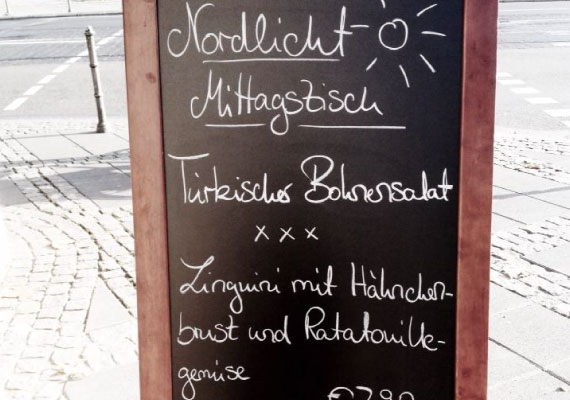 Nordlicht
Mittagstisch
Türkischer Bohnensalat
x x x
Linguini mit Hähnchen-
brust und Ratatouille-
gemüse
€7,90